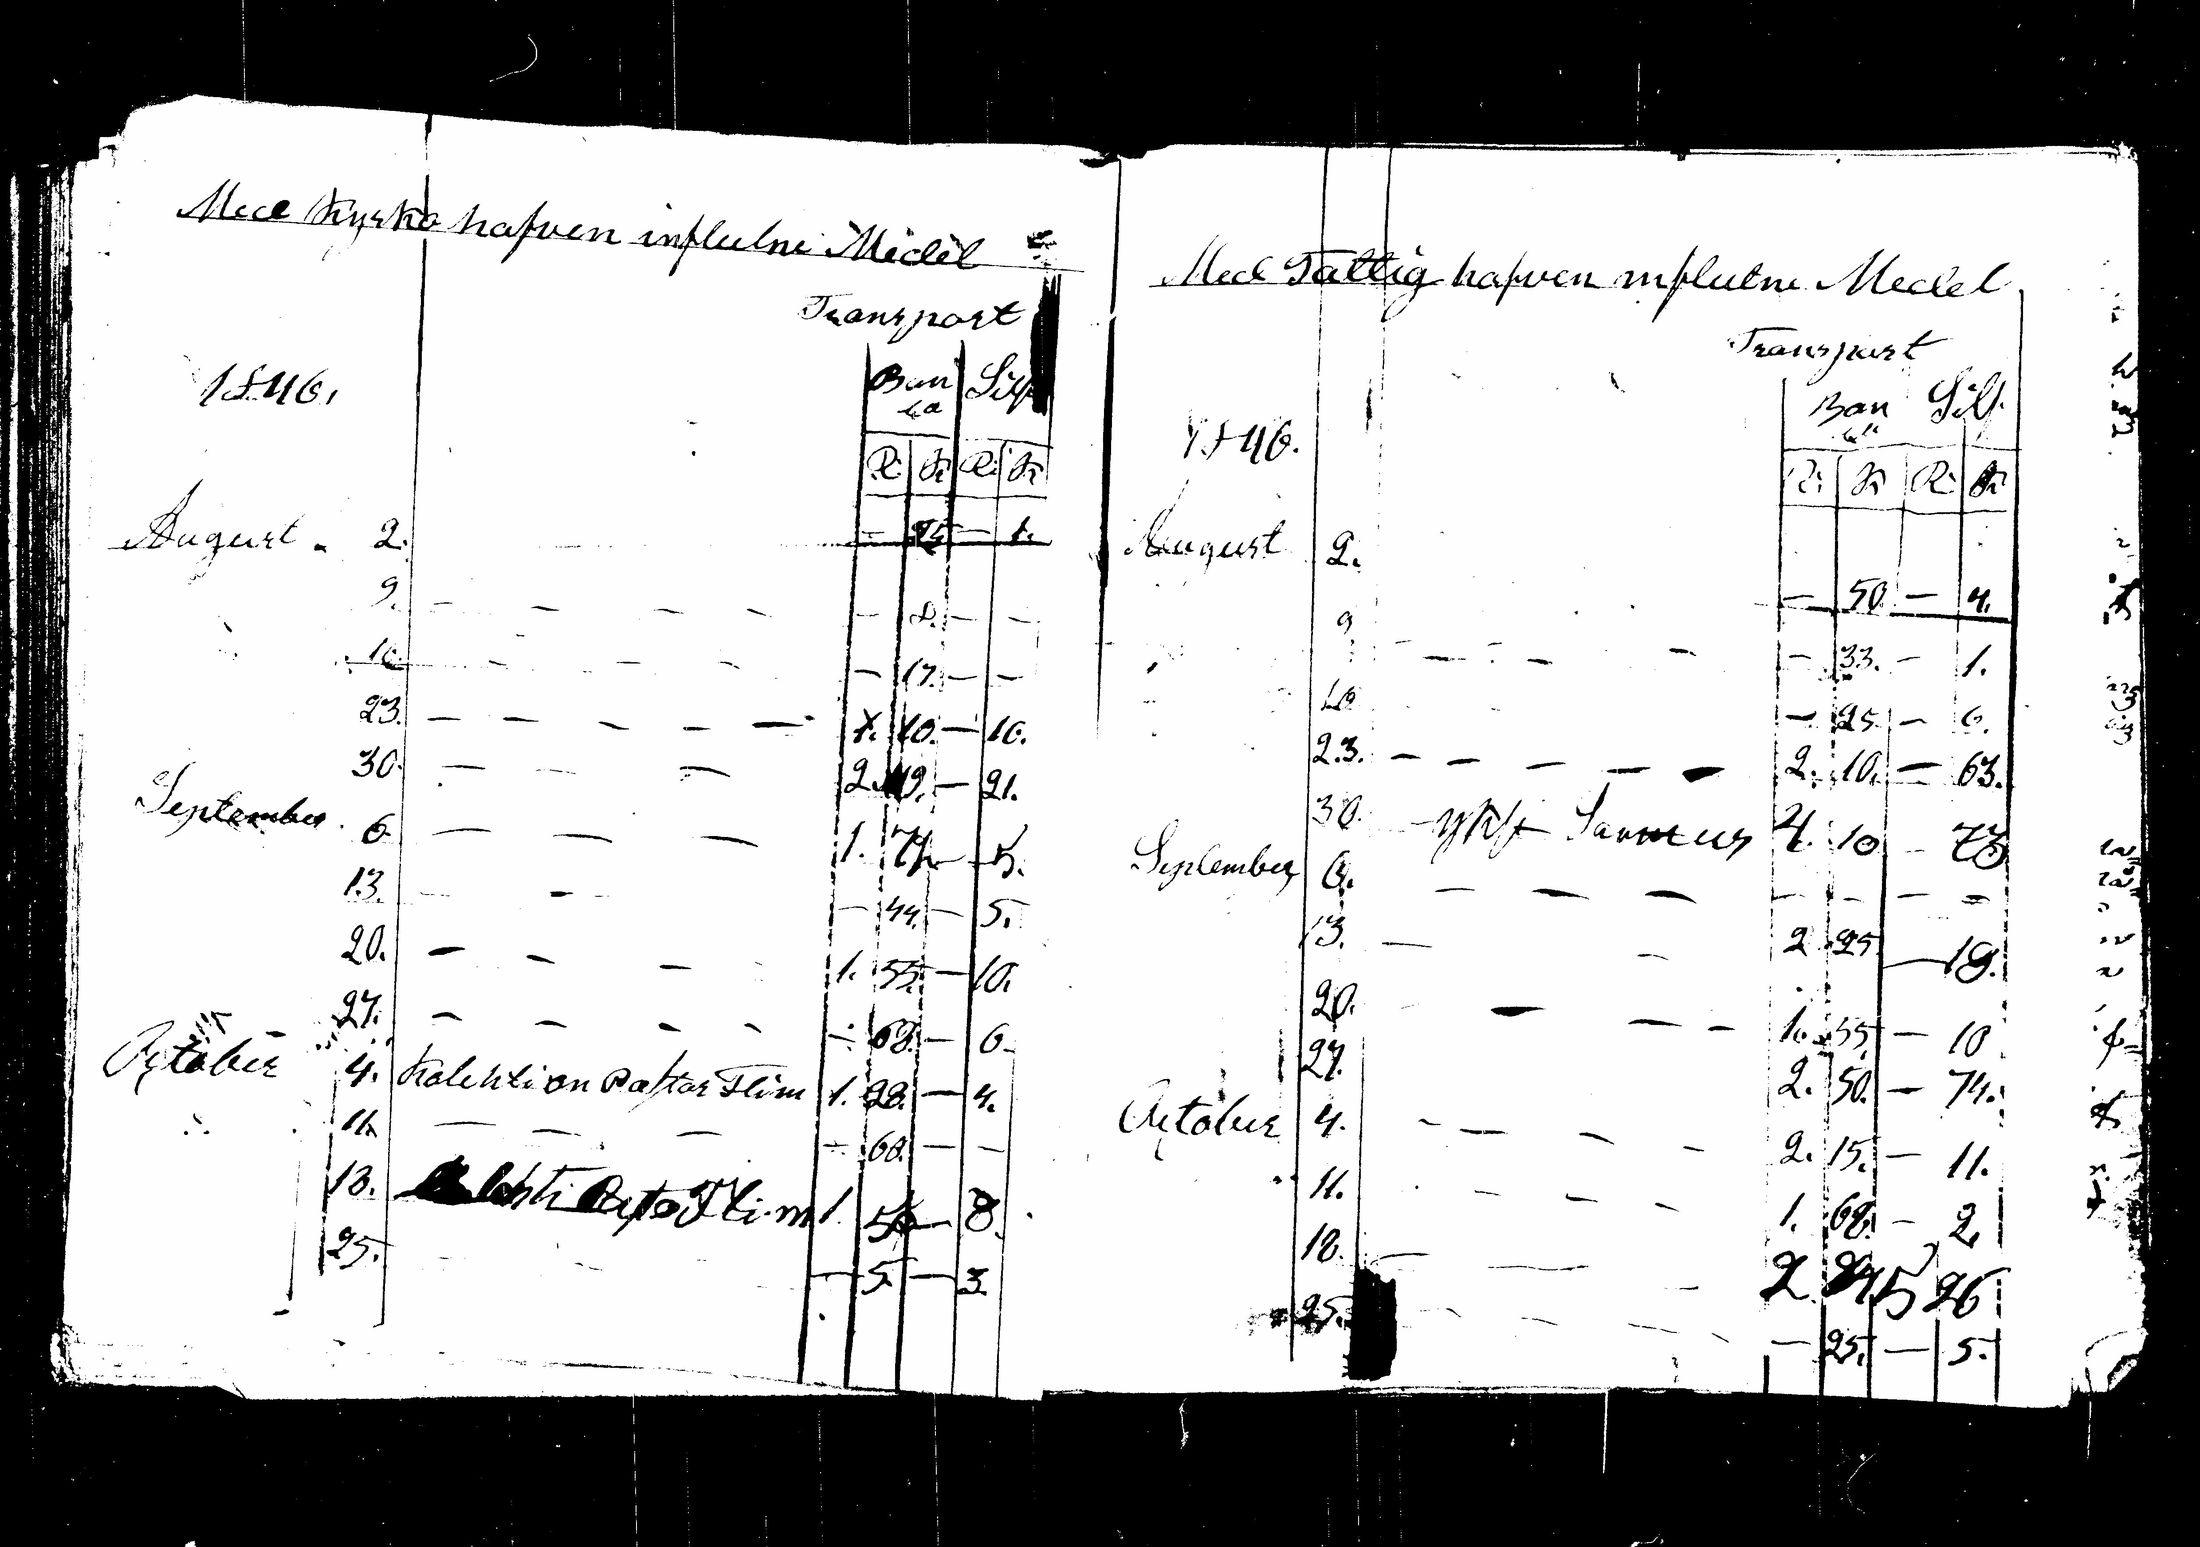 Med Kyrko hafven influtne Medel
Transport
1846.
Banko Silf
R. K. R. K.
August 2. — 25 — 1.
9. — — — — — 8. — —
16. — — — — — 17. — —
23. — — — — — 1. 10. — 16.
30. — — — 2. 19. — 21.
September 6. — — — 1. 71. — 5.
13. — — — 44. — 5.
20. — — — — 1. 55. — 10.
27. — — — — — 68. — 6.
October 4. Kolektion Pastor Flim 1. 28. — 4.
11. — — — — 68. — —
18. 1. 56 — 8.
25. — 5. — 3.
Med Fattig hafven influtne Medel
Transport
1846.
Banko Silf
R. K. R. K.
August 2. — 50. — 4.
9. — — — — — 33. — 1.
16. — 25. — 6.
23. — — — — — 2. 10. — 63.
30. 4. 10 — 73
September 6. — — — — — — —
13. — — 2. 25. — 19.
20. — — — 1. 55 — 10
27. 2. 50. — 74.
October 4. — — — — 2. 15. — 11.
11. — — — 1. 68. — 2.
18. — — — 2 26
25. — — — — 25. — 5.